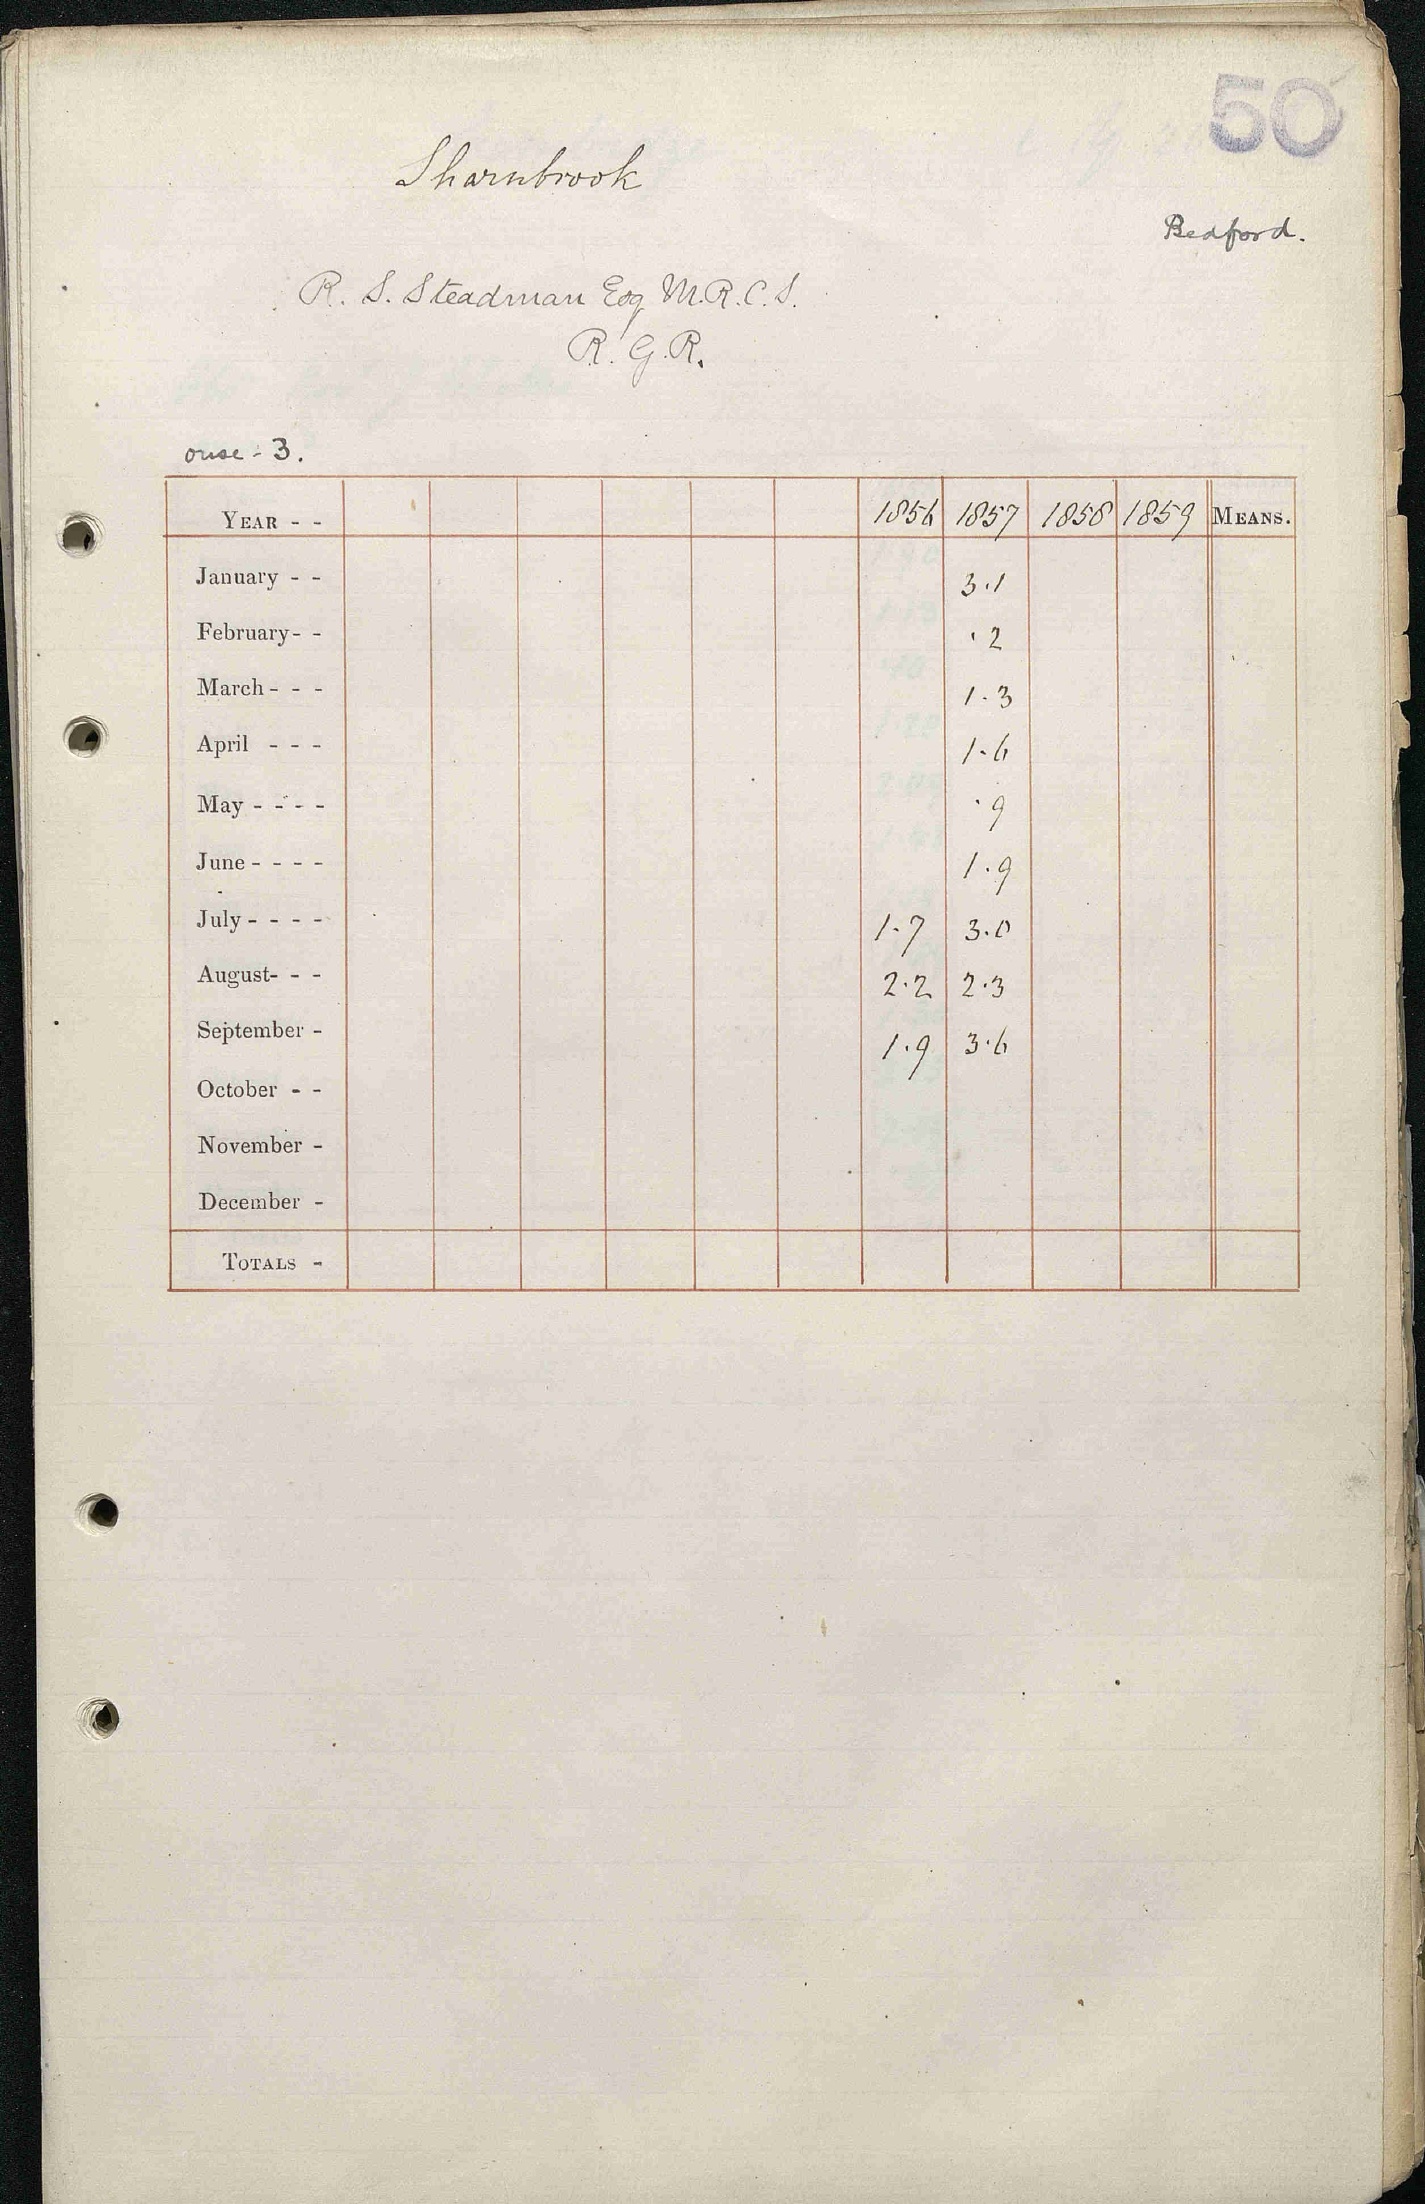 50
Sharnbrook
Bedford.
R. S. Steadman Esq M.R.C.S.
R. G. R.
ouse - 3.
YEAR - - 1856 1857 1858 1859 MEANS.
January - - 3.1
February- - .2
March - - - 1.3
April - - - 1.6
May - - - - .9
June - - - - 1.9
July - - - - 1.7 3.0
August- - - 2.2 2.3
September - 1.9 3.6
October - -
November -
December -
TOTALS -